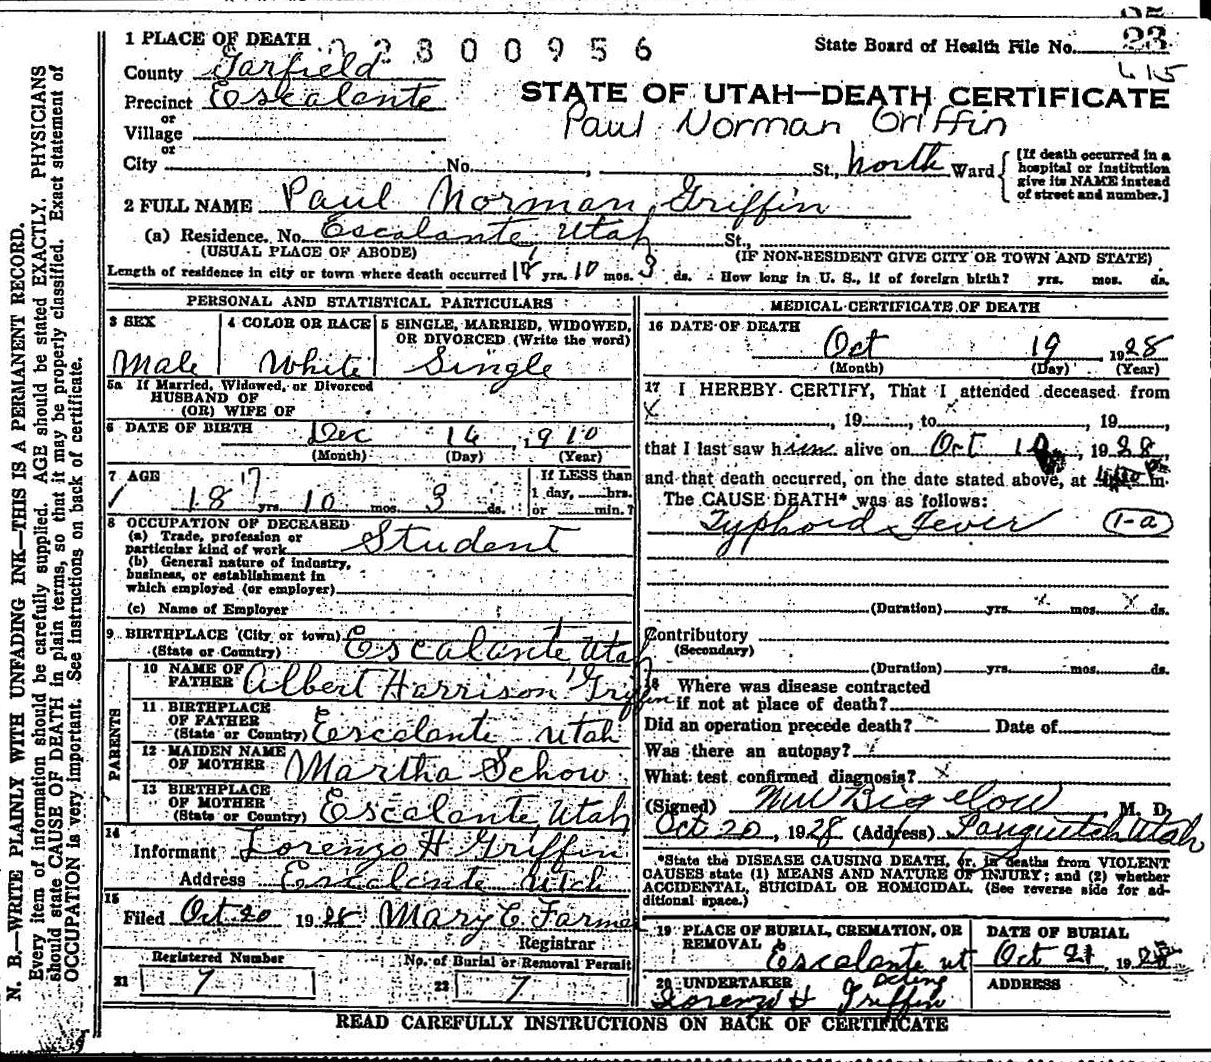 23
415
1 PLACE OF DEATH 2300956
State Board of Health File No.
County Garfield
Precinct Escalante
STATE OF UTAH—DEATH CERTIFICATE
Paul Norman Griffin
or
Village
or
City No. , St., North Ward
[If death occurred in a
hospital or institution
give its NAME instead
of street and number.]
2 FULL NAME Paul Norman Griffin
(a) Residence. No. Escalante, Utah St.,
(USUAL PLACE OF ABODE) (IF NON-RESIDENT GIVE CITY OR TOWN AND STATE)
Length of residence in city or town where death occurred yrs. 10 mos. 3 ds. How long in U. S., if of foreign birth? yrs. mos. ds.
PERSONAL AND STATISTICAL PARTICULARS
3 SEX
Male
4 COLOR OR RACE
White
5 SINGLE, MARRIED, WIDOWED,
OR DIVORCED (Write the word)
Single
5a If Married, Widowed, or Divorced
HUSBAND OF
(OR) WIFE OF
6 DATE OF BIRTH Dec 16 1910
(Month) (Day) (Year)
7 AGE
18 17 yrs. 10 mos. 3 ds.
If LESS than
1 day, hrs.
or min.?
8 OCCUPATION OF DECEASED
(a) Trade, profession or
particular kind of work Student
(b) General nature of industry,
business, or establishment in
which employed (or employer)
(c) Name of Employer
9 BIRTHPLACE (City or town)
(State or Country) Escalante Utah
PARENTS
10 NAME OF
FATHER Albert Harrison Griffin
11 BIRTHPLACE
OF FATHER
(State or Country) Escalante Utah
12 MAIDEN NAME
OF MOTHER Martha Schow
13 BIRTHPLACE
OF MOTHER
(State or Country) Escalante, Utah
14
Informant Lorenzo H Griffin
Address Escalante Utah
15
Filed Oct 20 1928 Mary E Farmer
Registrar
Registered Number
21 7
No. of Burial or Removal Permit
22 7
MEDICAL CERTIFICATE OF DEATH
16 DATE OF DEATH
Oct 19 1928
(Month) (Day) (Year)
17 I HEREBY CERTIFY, That I attended deceased from
x , 19 , to x , 19 ,
that I last saw him alive on Oct , 1928,
and that death occurred, on the date stated above, at m.
The CAUSE DEATH* was as follows:
Typhoid Fever (1-a)
(Duration) yrs. x mos. x ds.
Contributory
(Secondary)
(Duration) yrs. mos. ds.
18 Where was disease contracted
if not at place of death?
Did an operation precede death? Date of
Was there an autopsy?
What test confirmed diagnosis? x
(Signed) MW Bigelow M. D.
Oct 20, 1928 (Address) Panguitch Utah
*State the DISEASE CAUSING DEATH, or, in deaths from VIOLENT
CAUSES state (1) MEANS AND NATURE OF INJURY; and (2) whether
ACCIDENTAL, SUICIDAL OR HOMICIDAL. (See reverse side for ad-
ditional space.)
19 PLACE OF BURIAL, CREMATION, OR
REMOVAL Escalante ut
DATE OF BURIAL
Oct 21, 1928
20 UNDERTAKER
Lorenzo H Griffin
ADDRESS
READ CAREFULLY INSTRUCTIONS ON BACK OF CERTIFICATE
N. B.—WRITE PLAINLY WITH UNFADING INK—THIS IS A PERMANENT RECORD.
Every item of information should be carefully supplied. AGE should be stated EXACTLY. PHYSICIANS
should state CAUSE OF DEATH in plain terms, so that it may be properly classified. Exact statement of
OCCUPATION is very important. See instructions on back of certificate.